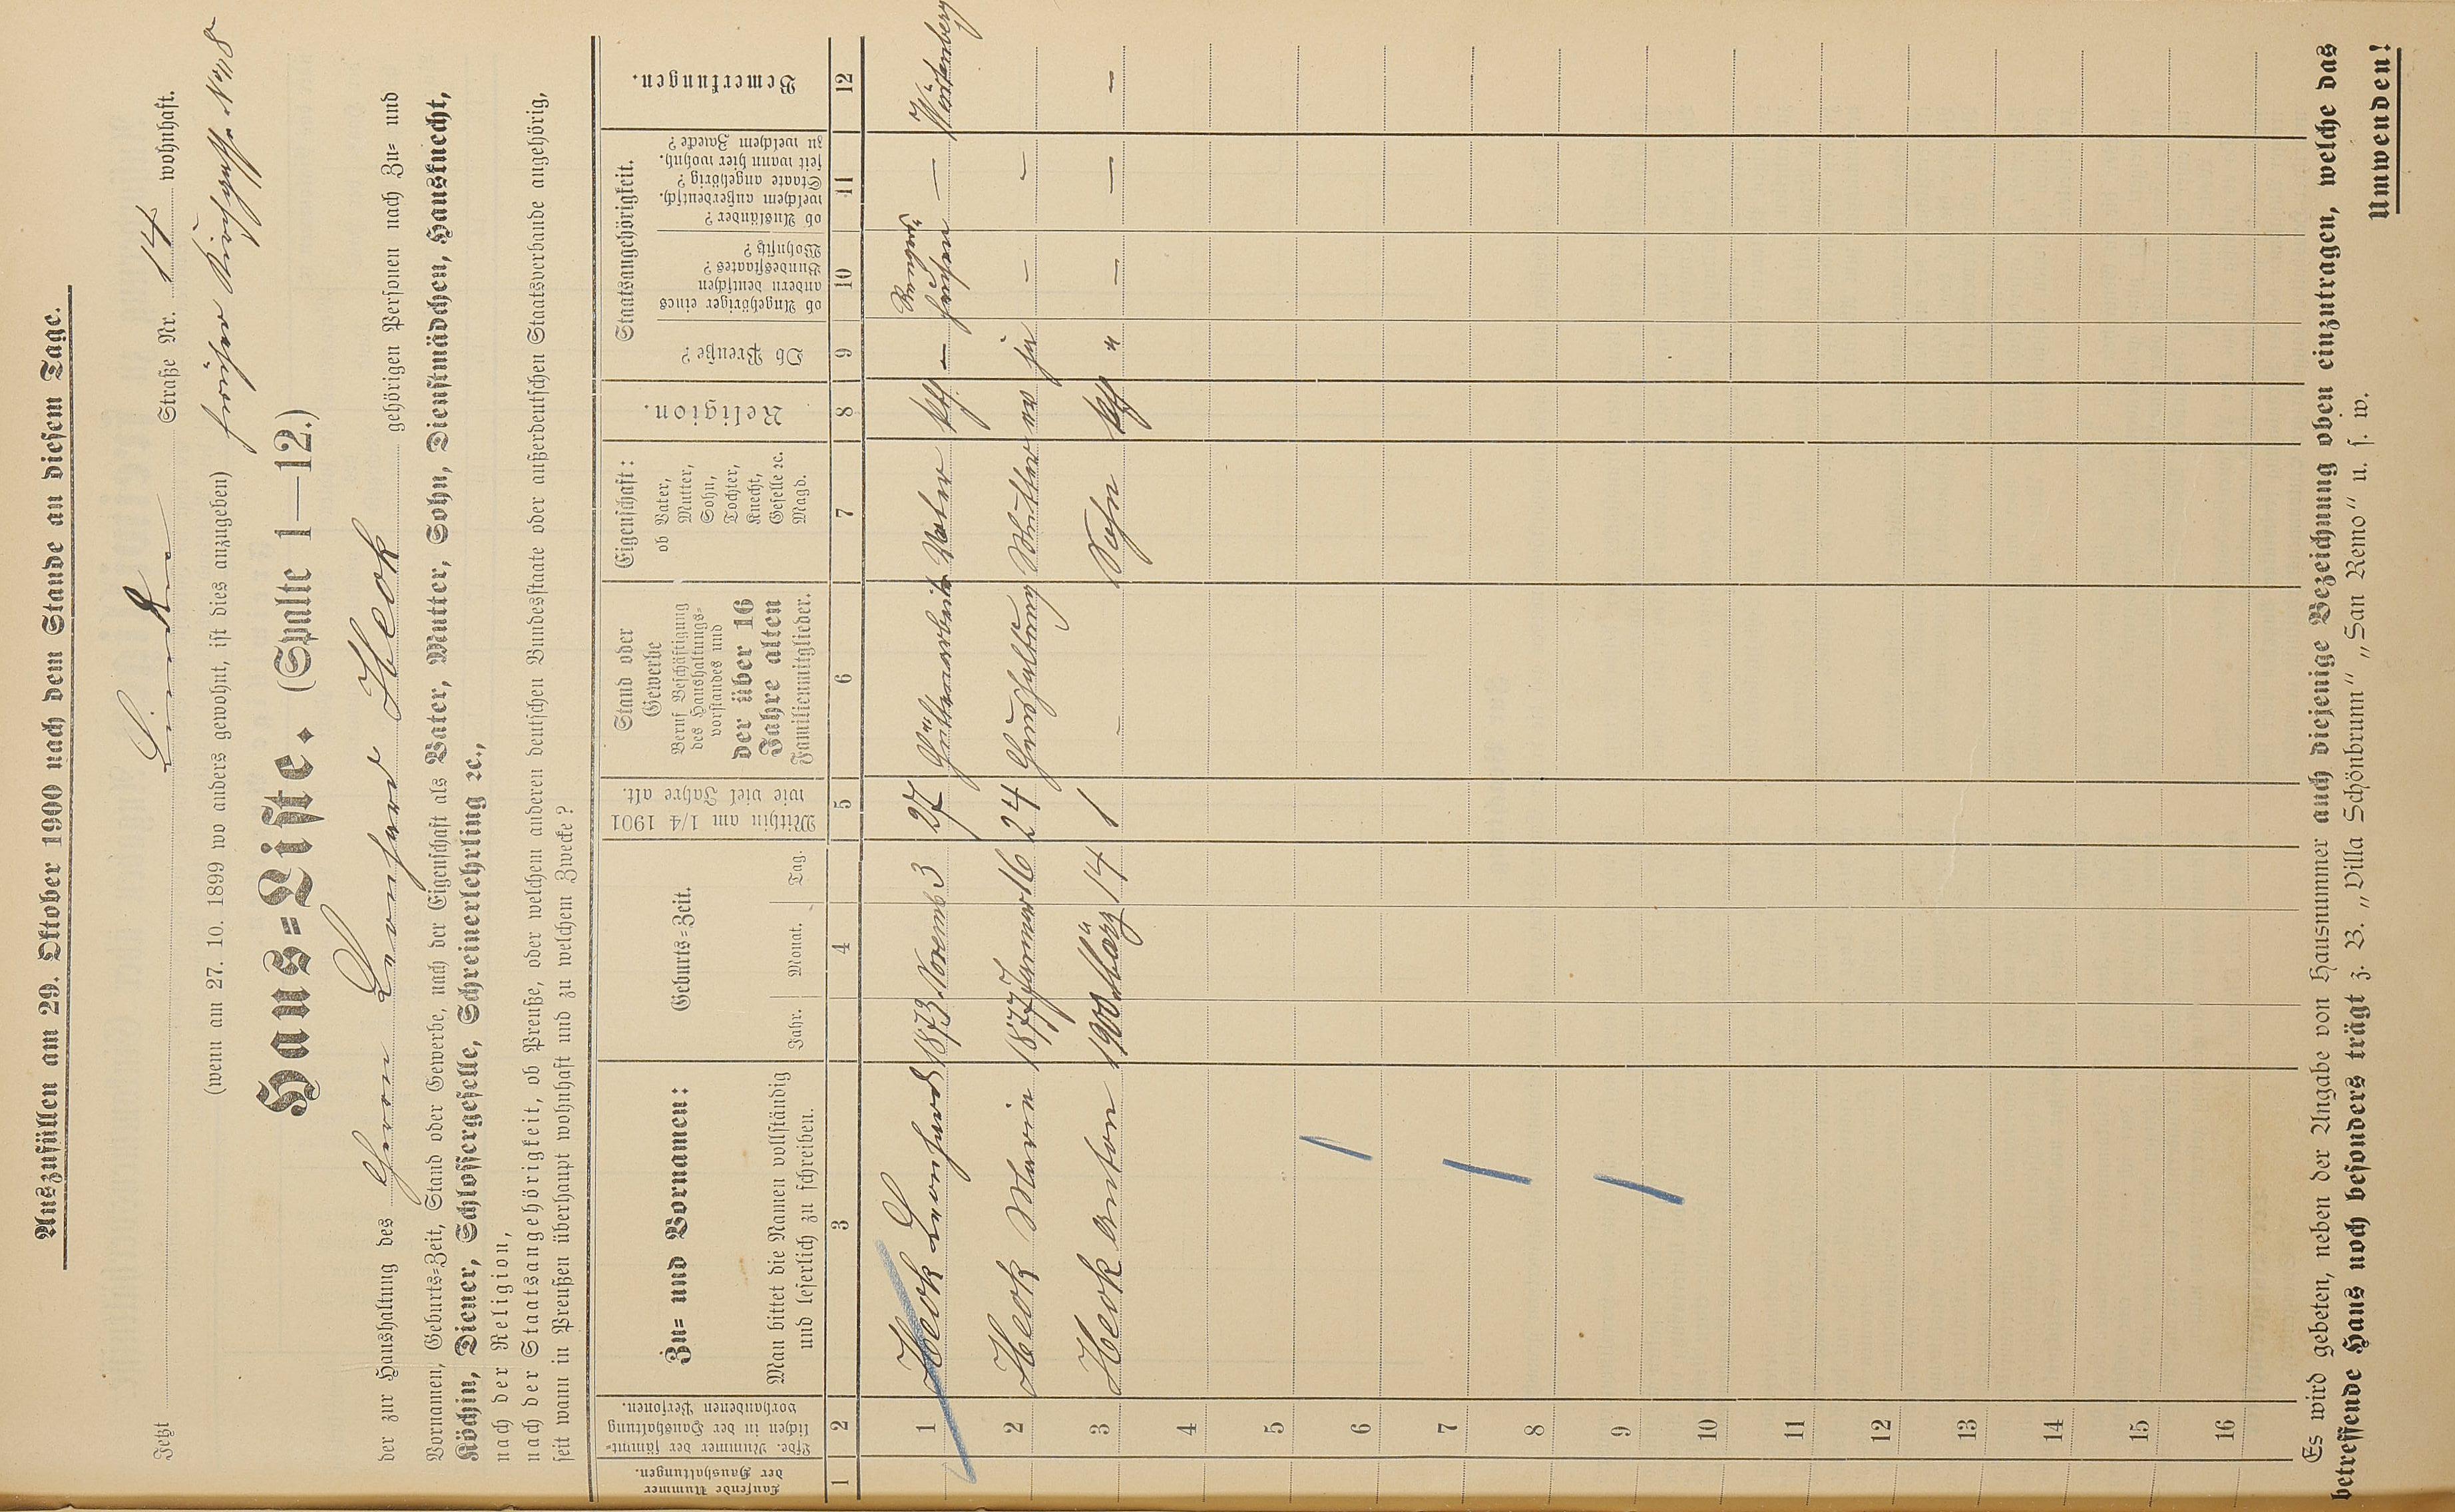 Auszufüllen am 29. Oktober 1900 nach dem Stande an diesem Tage.
Jetzt Linden Straße Nr. 14 wohnhaft.
(wenn am 27. 10. 1899 wo anders gewohnt, ist dies anzugeben) früher
Haus=Liste. (Spalte 1—12.)
der zur Haushaltung des Herrn Leonhard Kleok gehörigen Personen nach Zu= und
Vornamen, Geburts=Zeit, Stand oder Gewerbe, nach der Eigenschaft als Vater, Mutter, Sohn, Dienstmädchen, Hausknecht,
Köchin, Diener, Schlossergeselle, Schreinerlehrling ꝛc.,
nach der Religion,
nach der Staatsangehörigkeit, ob Preuße, oder welchem anderen deutschen Bundesstaate oder außerdeutschen Staatsverbande angehörig,
seit wann in Preußen überhaupt wohnhaft und zu welchem Zwecke?
Laufende Nummer der Haushaltungen.
Lfde. Nummer der sämmt=lichen in der Haushaltung vorhandenen Personen.
Zu= und Vornamen:
Man bittet die Namen vollständig
und leserlich zu schreiben.
Geburts=Zeit.
Jahr. Monat. Tag.
Mithin am 1/4 1901 wie viel Jahre alt.
Stand oder
Gewerbe
Beruf Beschäftigung
des Haushaltungs=
vorstandes und
der über 16
Jahre alten
Familienmitglieder.
Eigenschaft:
ob Vater,
Mutter,
Sohn,
Tochter,
Knecht,
Geselle ꝛc.
Magd.
Religion.
Staatsangehörigkeit.
Ob Preuße?
ob Angehöriger eines
andern deutschen
Bundesstaates?
Wohnsitz?
ob Ausländer?
welchem außerdeutsch.
Staate angehörig?
seit wann hier wohnh.
zu welchem Zwecke?
Bemerkungen.
1 2 3 4 5 6 7 8 9 10 11 12
1 Kleok Leonhard 1873 Novemb 3 27 Hüttenarbeiter Vater kth – –
2 Kleok Marie 1877 Januar 16 24 Haushaltung Mutter ev ja – –
3 Kleok Anton 1900 März 14 1 – Sohn kth " – – –
4
5
6
7
8
9
10
11
12
13
14
15
16
Es wird gebeten, neben der Angabe von Hausnummer auch diejenige Bezeichnung oben einzutragen, welche das
betreffende Haus noch besonders trägt z. B. „Villa Schönbrunn" „San Remo" u. s. w.
Umwenden!